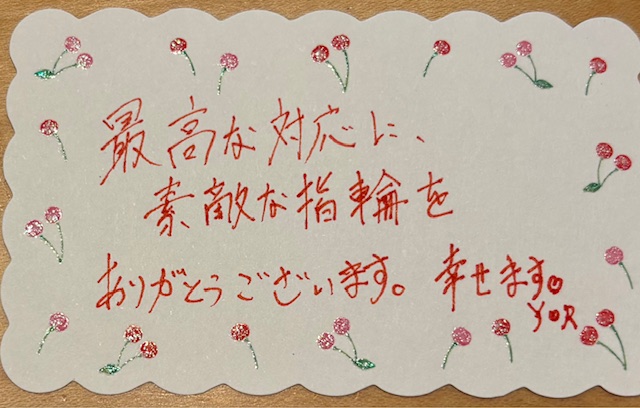 最高な対応に、
素敵な指輪を
ありがとうございます。幸せます。
YOR